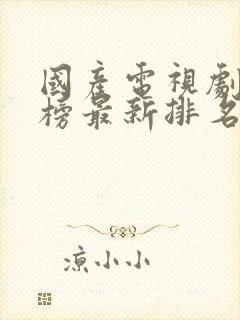 國產電視劇
榜最新排名
涼小小